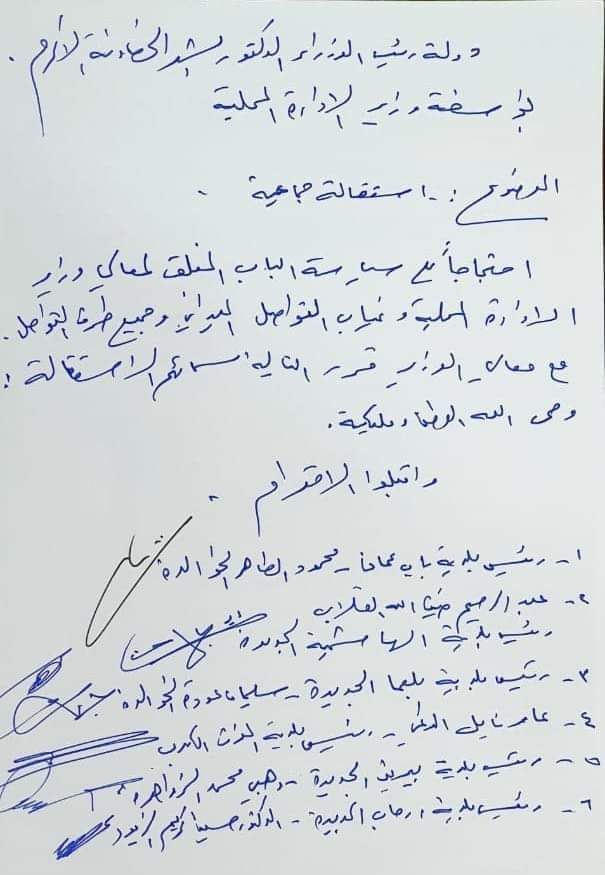 دولة رئيس الوزراء الدكتور بشر الخصاونة الأكرم .
بواسطة وزير الإدارة المحلية
الموضوع :- استقالة جماعية .
احتجاجاً على سياسة الباب المغلق لمعالي وزير
الإدارة المحلية وغياب التواصل الميداني وجميع طرق التواصل .
مع معالي الوزير قرر التالية اسمائهم الاستقالة :
وحمى الله الوطن ومليكه .
واقبلوا الاحترام .
١- رئيس بلدية باب عمان - محمود الطاهر الخوالدة
٢- عبد الرحيم ضيف الله القلاب
رئيس بلدية الهاشمية الجديدة
٣- رئيس بلدية بلعما الجديدة - سليمان عودة الخوالده
٤- عامر نايل - رئيس بلدية الكبرى
٥- رئيس بلدية بيرين الجديدة - وهبي محمد الزواهرة
٦- رئيس بلدية ارحاب الجديدة - الدكتور حسين كريم الزيود